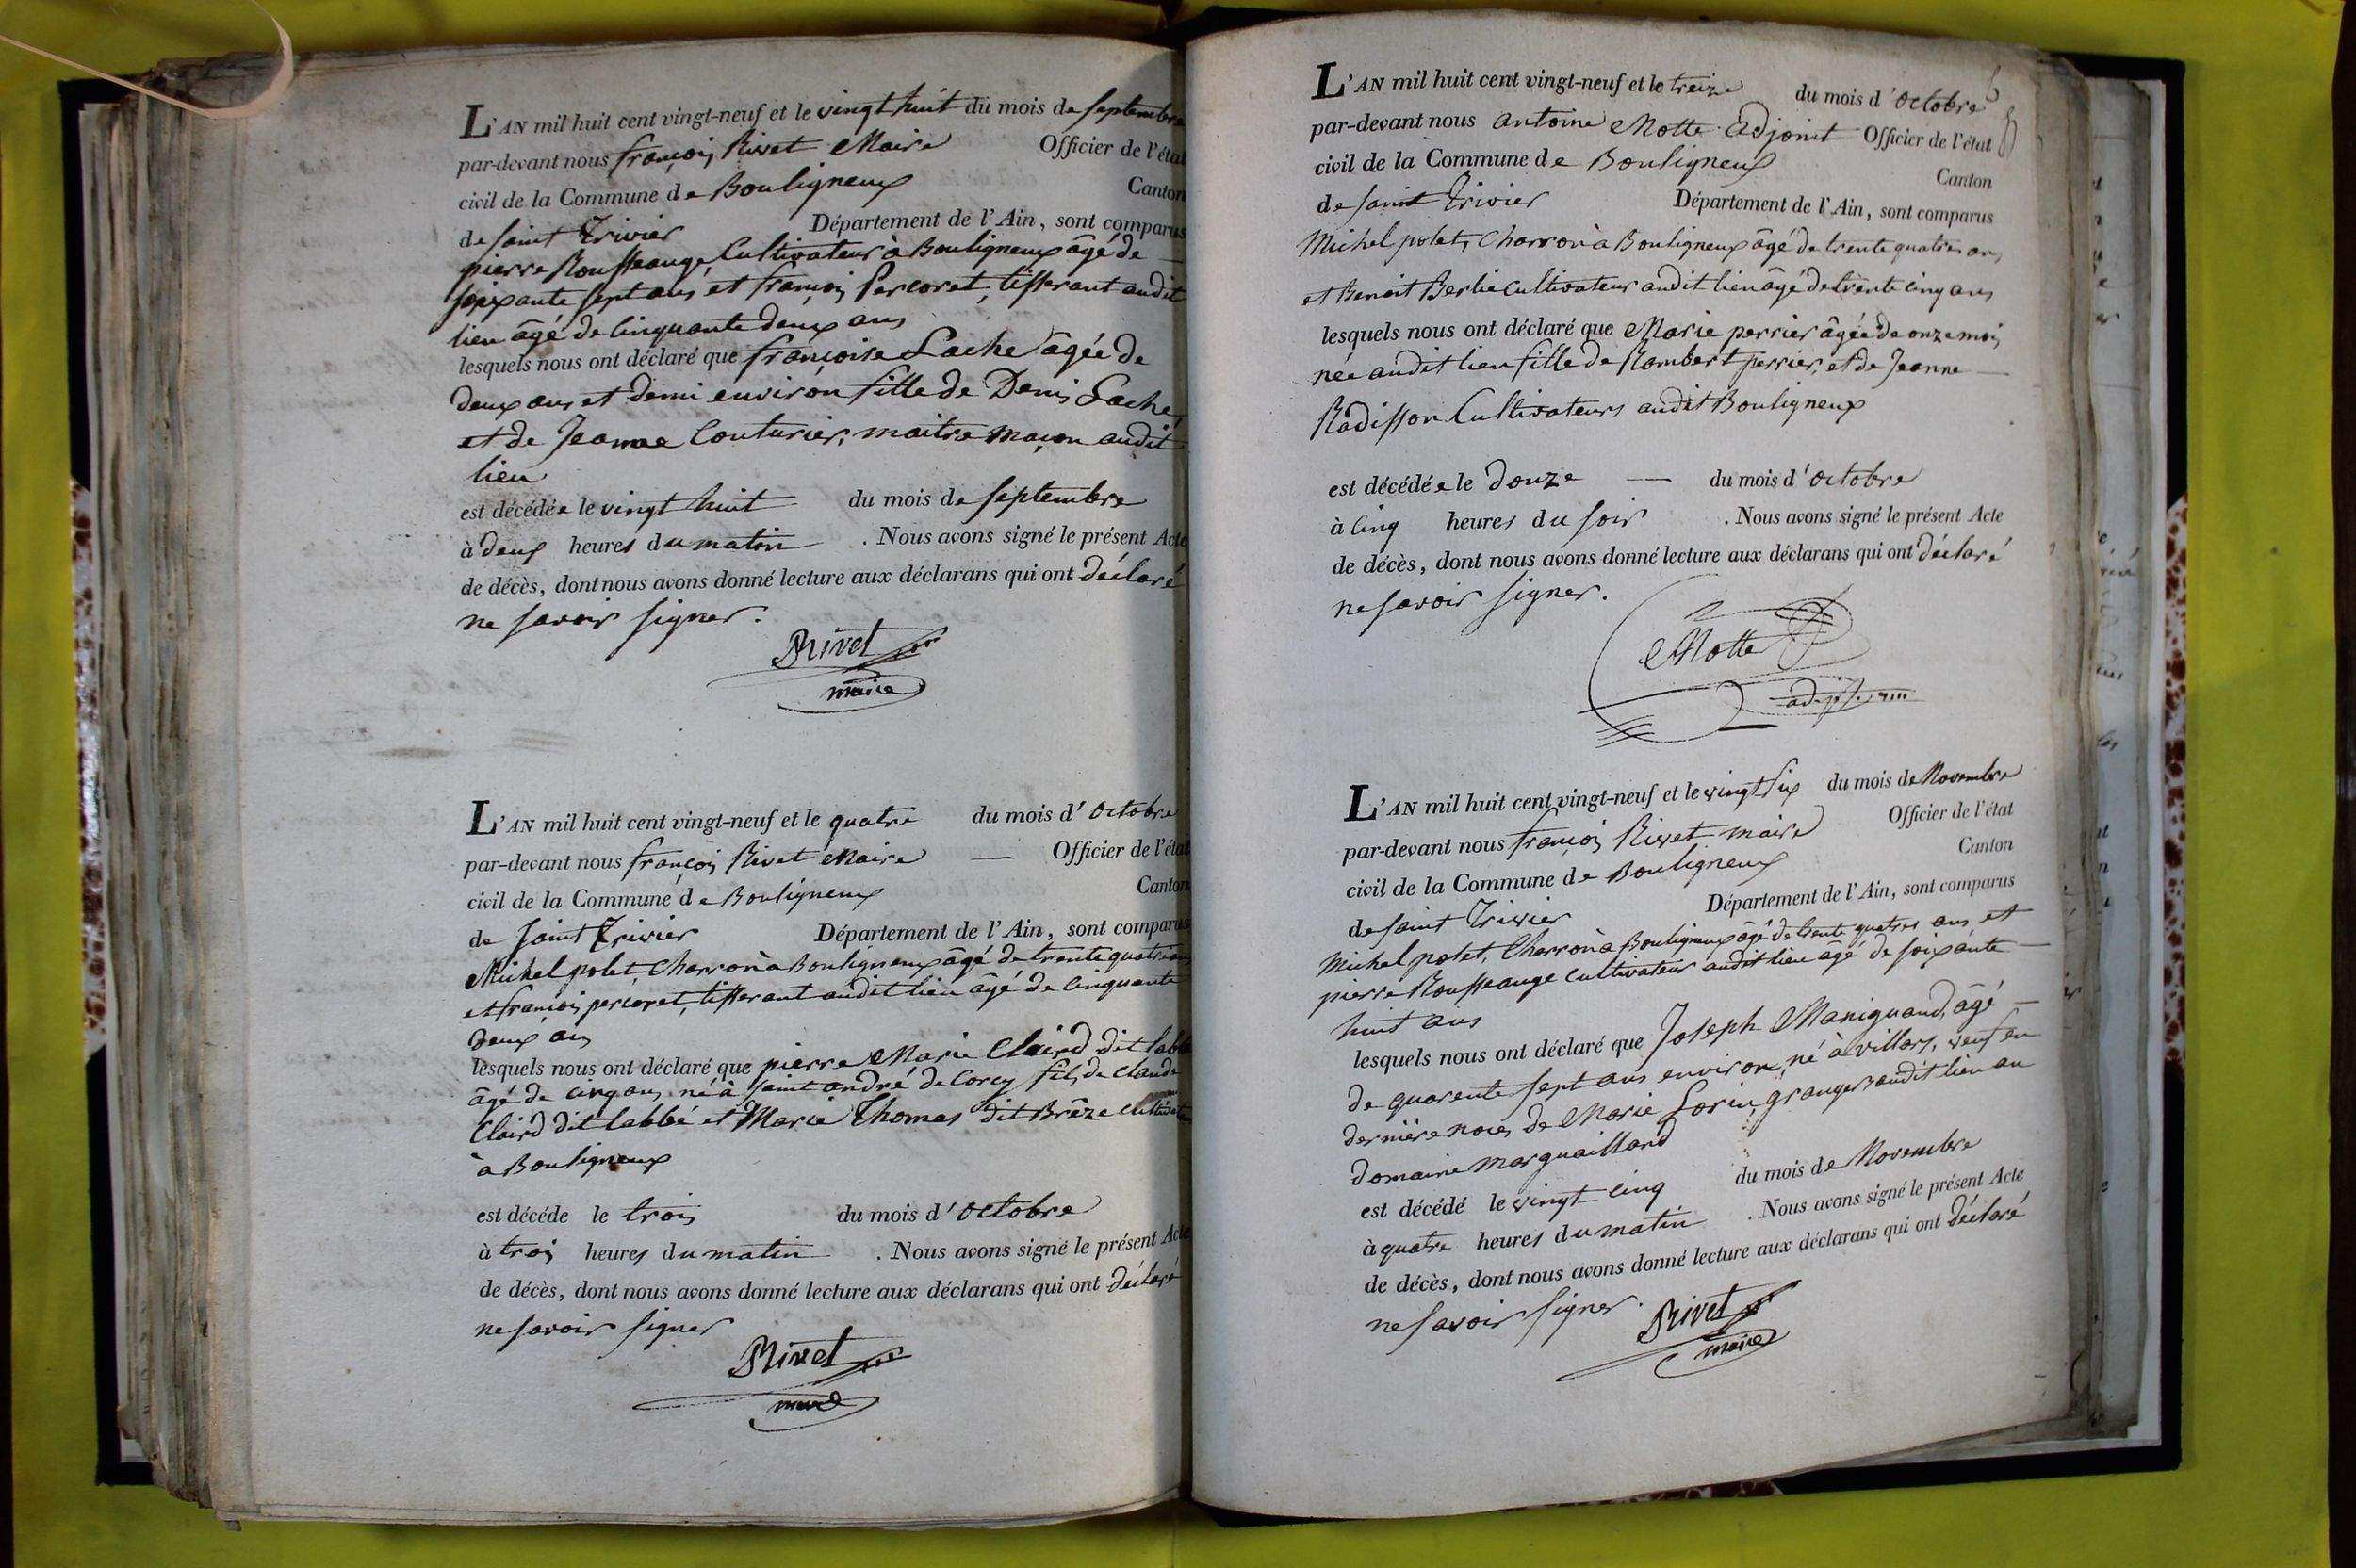 L'AN mil huit cent vingt-neuf et le vingt huit du mois de septembre
par-devant nous françois Rivet Maire Officier de l'état
civil de la Commune de Bouligneux Canton
de saint Trivier Département de l'Ain, sont comparus
pierre Rousseange, Cultivateur à Bouligneux âgé de
soixante sept ans et françois Percoret, tisserant audit
lieu âgé de cinquante deux ans
lesquels nous ont déclaré que françoise Lache âgée de
deux ans et demi environ fille de Denis Lache,
et de Jeanne Couturier, maitre maçon audit
lieu
est décédée le vingt huit du mois de septembre
à deux heures du matin . Nous avons signé le présent Acte
de décès, dont nous avons donné lecture aux déclarans qui ont déclaré
ne savoir signer.
Rivet
maire
L'AN mil huit cent vingt-neuf et le quatre du mois d'octobre
par-devant nous françois Rivet Maire — Officier de l'état
civil de la Commune de Bouligneux Canton
de saint Trivier Département de l'Ain, sont comparus
Michel polet, Charron à Bouligneux âgé de trente quatre ans
et françois percoret, tisserant audit lieu âgé de cinquante
deux ans
lesquels nous ont déclaré que pierre Marie Claird dit labbé
âgé de cinq ans, né à saint andré de Corcy fils de Claude
Claird dit labbé et Marie Thomas dit Brêze
à Bouligneux
est décédé le trois du mois d'octobre
à trois heures du matin . Nous avons signé le présent Acte
de décès, dont nous avons donné lecture aux déclarans qui ont déclaré
ne savoir signer
Rivet
maire
L'AN mil huit cent vingt-neuf et le treize du mois d'octobre
par-devant nous antoine Motte adjoint Officier de l'état
civil de la Commune de Bouligneux Canton
de saint Trivier Département de l'Ain, sont comparus
Michel polet, Charron à Bouligneux âgé de trente quatre ans,
et Benoit Berlie cultivateur audit lieu âgé de trente cinq ans
lesquels nous ont déclaré que Marie perrier âgée de onze mois
née audit lieu fille de Rambert perrier, et de Jeanne —
Radisson Cultivateurs audit Bouligneux
est décédée le douze — du mois d'octobre
à cinq heures du soir . Nous avons signé le présent Acte
de décès, dont nous avons donné lecture aux déclarans qui ont déclaré
ne savoir signer.
Motte
L'AN mil huit cent vingt-neuf et le vingt six du mois de Novembre
par-devant nous françois Rivet maire Officier de l'état
civil de la Commune de Bouligneux Canton
de saint Trivier Département de l'Ain, sont comparus
Michel polet, Charron à Bouligneux âgé de trente quatre ans et
pierre Rousseange cultivateur audit lieu âgé de soixante
huit ans
lesquels nous ont déclaré que Joseph Maniguand, âgé —
de quarente sept ans environ, né à villars, veuf en
dernière noces de Marie Lorin, granger audit lieu au
domaine marguaillard
est décédé le vingt cinq du mois de Novembre
à quatre heures du matin . Nous avons signé le présent Acte
de décès, dont nous avons donné lecture aux déclarans qui ont déclaré
ne savoir signer.
Rivet
maire